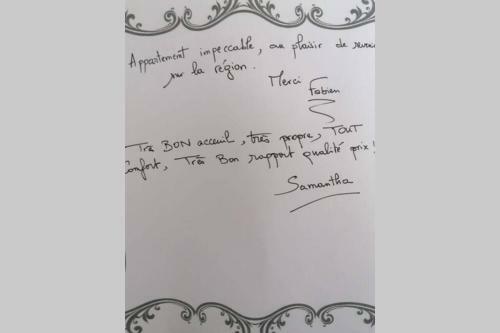 Appartement impeccable, au plaisir de
sur la région.
Merci Fabien
Très BON acceuil, très propre, TOUT
Confort, Très Bon rapport qualité prix !
Samantha